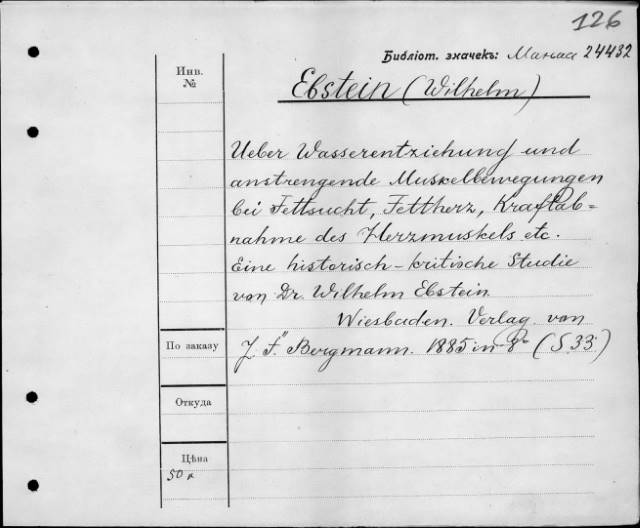 126
Библіот. значекъ: Манас 24432
Инв.
№
Ebstein (Wilhelm)
Ueber Wasserentziehung und
anstrengende Muskelbewegungen
bei Fettsucht, Fettherz, Kraftab=
nahme des Herzmuskels etc.
Eine historisch-kritische Studie
von Dr. Wilhelm Ebstein
Wiesbaden. Verlag von
По заказу
J. F. Bergmann. 1885 in-8° (S. 33.)
Откуда
Цѣна
50 к